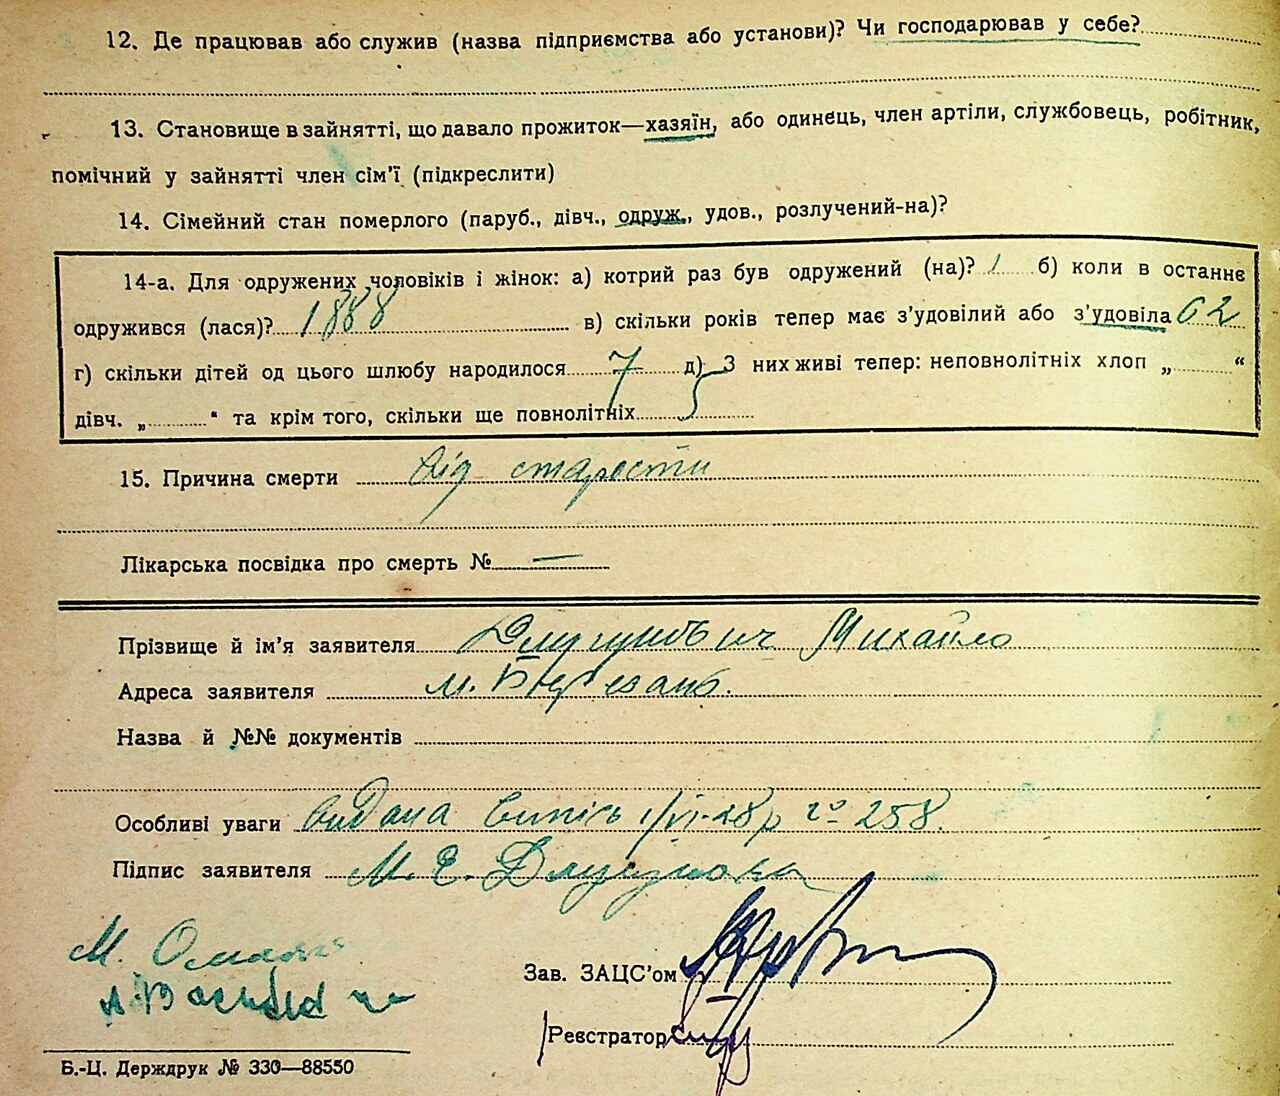 12. Де працював або служив (назва підприємства або установи)? Чи господарював у себе?
13. Становище в зайнятті, що давало прожиток—хазяїн, або одинець, член артіли, службовець, робітник,
помічний у зайнятті член сім'ї (підкреслити)
14. Сімейний стан померлого (паруб., дівч., одруж., удов., розлучений-на)?
14-а. Для одружених чоловіків і жінок: а) котрий раз був одружений (на)? 1 б) коли в останнє
одружився (лася)? 1888 в) скільки років тепер має з'удовілий або з'удовіла 62
г) скільки дітей од цього шлюбу народилося 7 д) З них живі тепер: неповнолітніх хлоп „ “
дівч. „ “ та крім того, скільки ще повнолітніх 5
15. Причина смерти від старости
Лікарська посвідка про смерть № —
Прізвище й ім'я заявителя Михайло
Адреса заявителя м.
Назва й №№ документів
Особливі уваги видана Випись 1/VI-28 р № 258.
Підпис заявителя М. Є.
М.
Зав. ЗАЦС'ом
Реєстратор
Б.-Ц. Держдрук № 330—88550